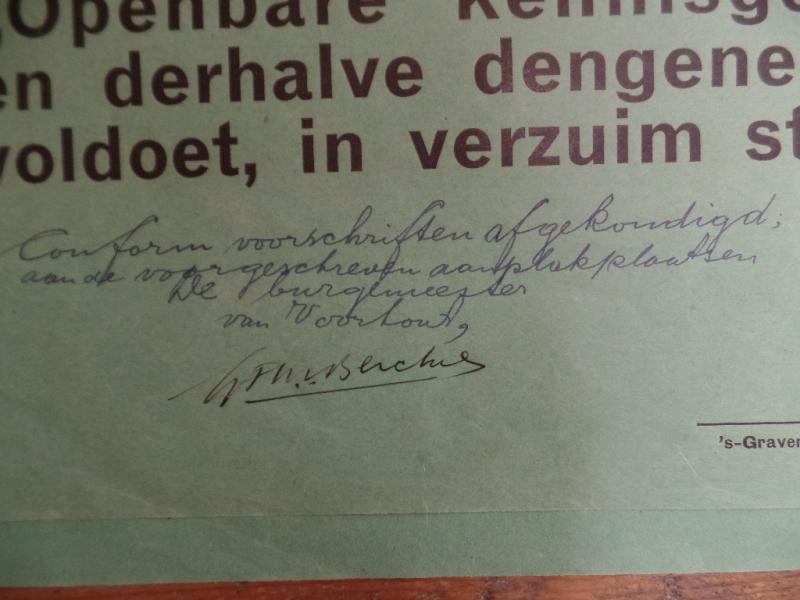 „Openbare Kennisge
en derhalve dengene
voldoet, in verzuim st
Conform voorschriften afgekondigd;
aan de voorgeschreven aanplakplaatsen
De burgemeester
van Voorhout,
's-Graven